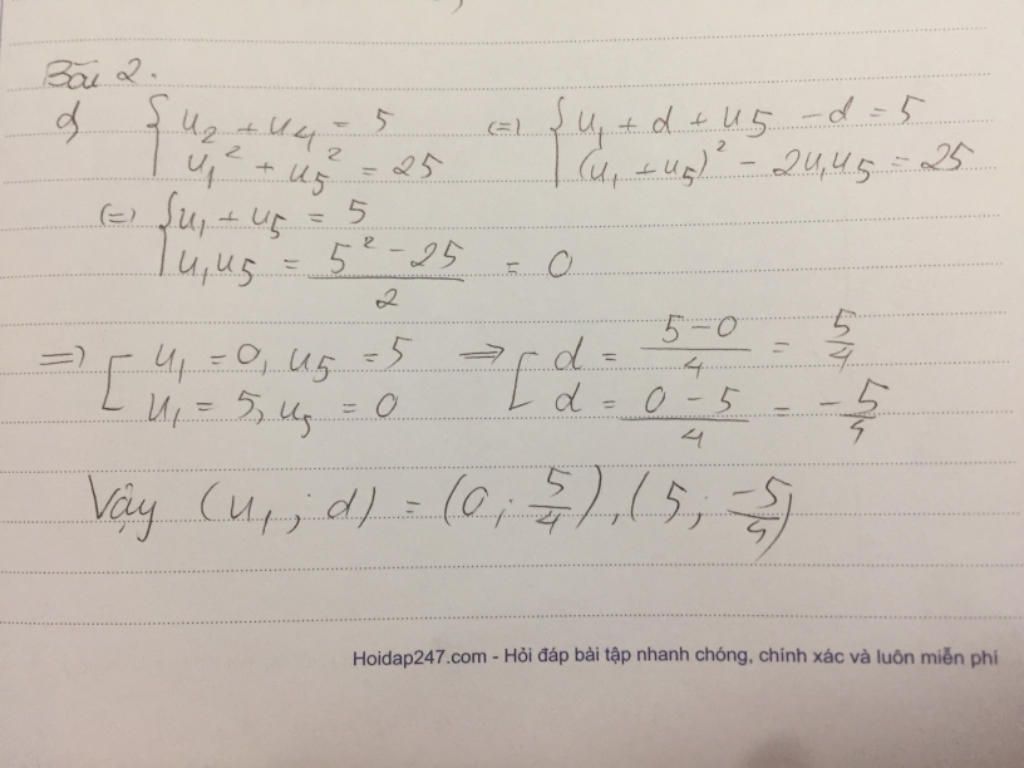 Bài 2.
d) { u₂ + u₄ = 5 (=) { u₁ + d + u5 - d = 5
u₁² + u₅² = 25 (u₁ + u₅)² - 2u₁u5 = 25
(=) { u₁ + u₅ = 5
u₁u5 = (5² - 25)/2 = 0
=> [ u₁ = 0, u5 = 5 => [ d = (5-0)/4 = 5/4
u₁ = 5, u₅ = 0 d = (0-5)/4 = -5/4
Vậy (u₁ ; d) = (0; 5/4), (5; -5/4)
Hoidap247.com - Hỏi đáp bài tập nhanh chóng, chính xác và luôn miễn phí